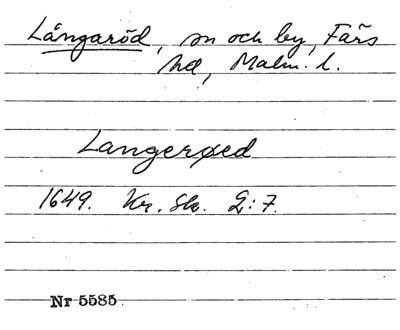 Långaröd, sn och by, Färs
hd, Malm. l.
Langerøed
1649. Kr. Sk. 2:7.
Nr 5585